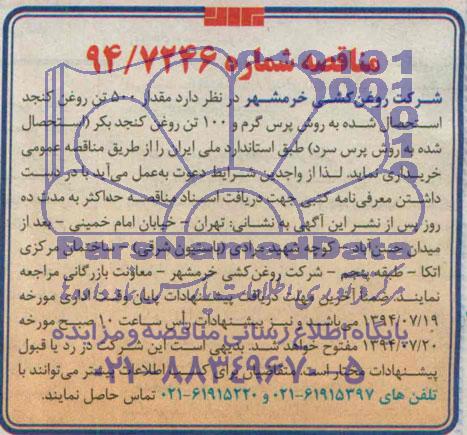 مناقصه شماره ۹۴/۷۲۴۶
شرکت روغن‌کشی خرمشهر در نظر دارد مقدار ۵۰۰ تن روغن کنجد
استحصال شده به روش پرس گرم و ۱۰۰ تن روغن کنجد بکر (استحصال
شده به روش پرس سرد) طبق استاندارد ملی ایران را از طریق مناقصه عمومی
خریداری نماید. لذا از واجدین شرایط دعوت به‌عمل می‌آید با در دست
داشتن معرفی‌نامه کتبی جهت دریافت اسناد مناقصه حداکثر به مدت ده
روز پس از نشر این آگهی به نشانی: تهران - خیابان امام خمینی - بعد از
میدان حسن‌آباد - کوچه شهید مرادی (باستیون شرقی) - ساختمان مرکزی
اتکا - طبقه پنجم - شرکت روغن‌کشی خرمشهر - معاونت بازرگانی مراجعه
نمایند. ضمناً آخرین مهلت دریافت پیشنهادات پایان وقت اداری مورخه
۱۳۹۴/۰۷/۱۹ می‌باشد و نیز پیشنهادات رأس ساعت ۱۰ صبح مورخه
۱۳۹۴/۰۷/۲۰ مفتوح خواهد شد. بدیهی است این شرکت در رد یا قبول
پیشنهادات مختار است. متقاضیان برای کسب اطلاعات بیشتر می‌توانند با
تلفن های ۶۱۹۱۵۳۹۷-۰۲۱ و ۶۱۹۱۵۲۲۰-۰۲۱ تماس حاصل نمایند.
ParsNamadData
پایگاه اطلاع رسانی مناقصه و مزایده
۰۲۱-۸۸۳۴۹۶۷۰-۵